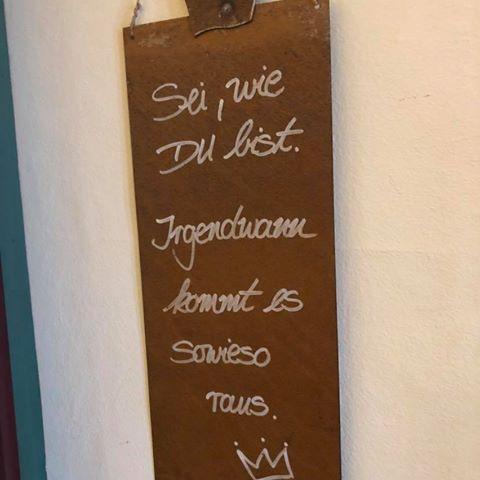 Sei, wie
DU bist.
Irgendwann
kommt es
sowieso
raus.